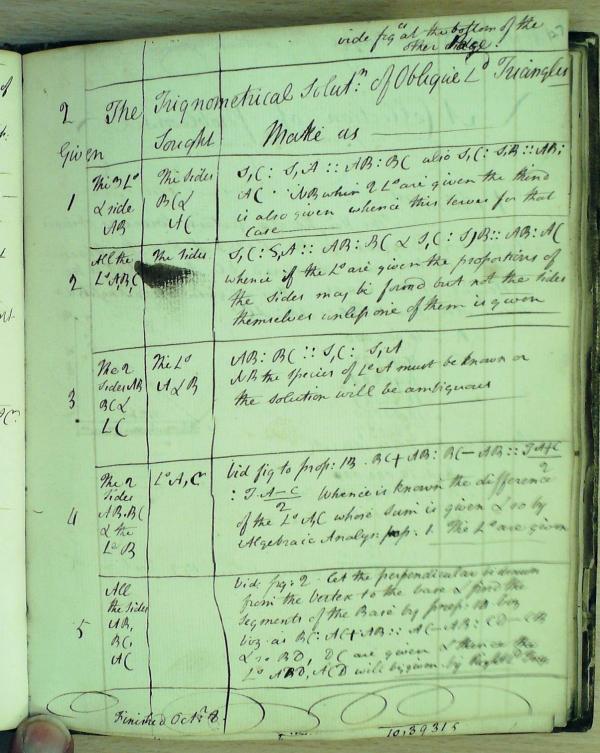 vide figs at the bottom of the
other Page.
2 The Trignometrical Solutn. of Oblique Ld Triangles
Given Sought Make as
1
The 3 Ls
& side
AB
The Sides
BC &
AC
S,C : S,A :: AB : BC also S,C : S,B :: AB :
AC NB when 2 Ls are given the third
is also given whence this serves for that
Case
2
All the
Ls A,B,C
The Sides
S,C : S,A :: AB : BC & S,C : S,B :: AB : AC
whence if the Ls are given the proportions of
the sides may be found but not the sides
themselves unless one of them is given
3
The 2
sides AB
BC &
LC
The Ls
A & B
AB : BC :: S,C : S,A
NB the species of Ls A must be known or
the solution will be ambiguous
4
The 2
sides
AB, BC
& the
Ls B
Ls A, C
Vid fig to prop: 1B. BC + AB : BC - AB :: T, A+C
2
: T, A-C Whence is known the difference
2
of the Ls AC whose sum is given & so by
Algebraic Analys: prop. 1. The Ls are given
5
All
the sides
AB,
BC,
AC
Vid: fig: 2. Let the perpendicular be drawn
from the Vertex to the base & find the
segments of the Base by prop: 1B
viz: as BC : AC + AB :: AC - AB : CD - DB
& so BD, DC are given & thence the
Ls ABD, ACD will be given by Right Ld
Finished Octr. 8.
10,39315